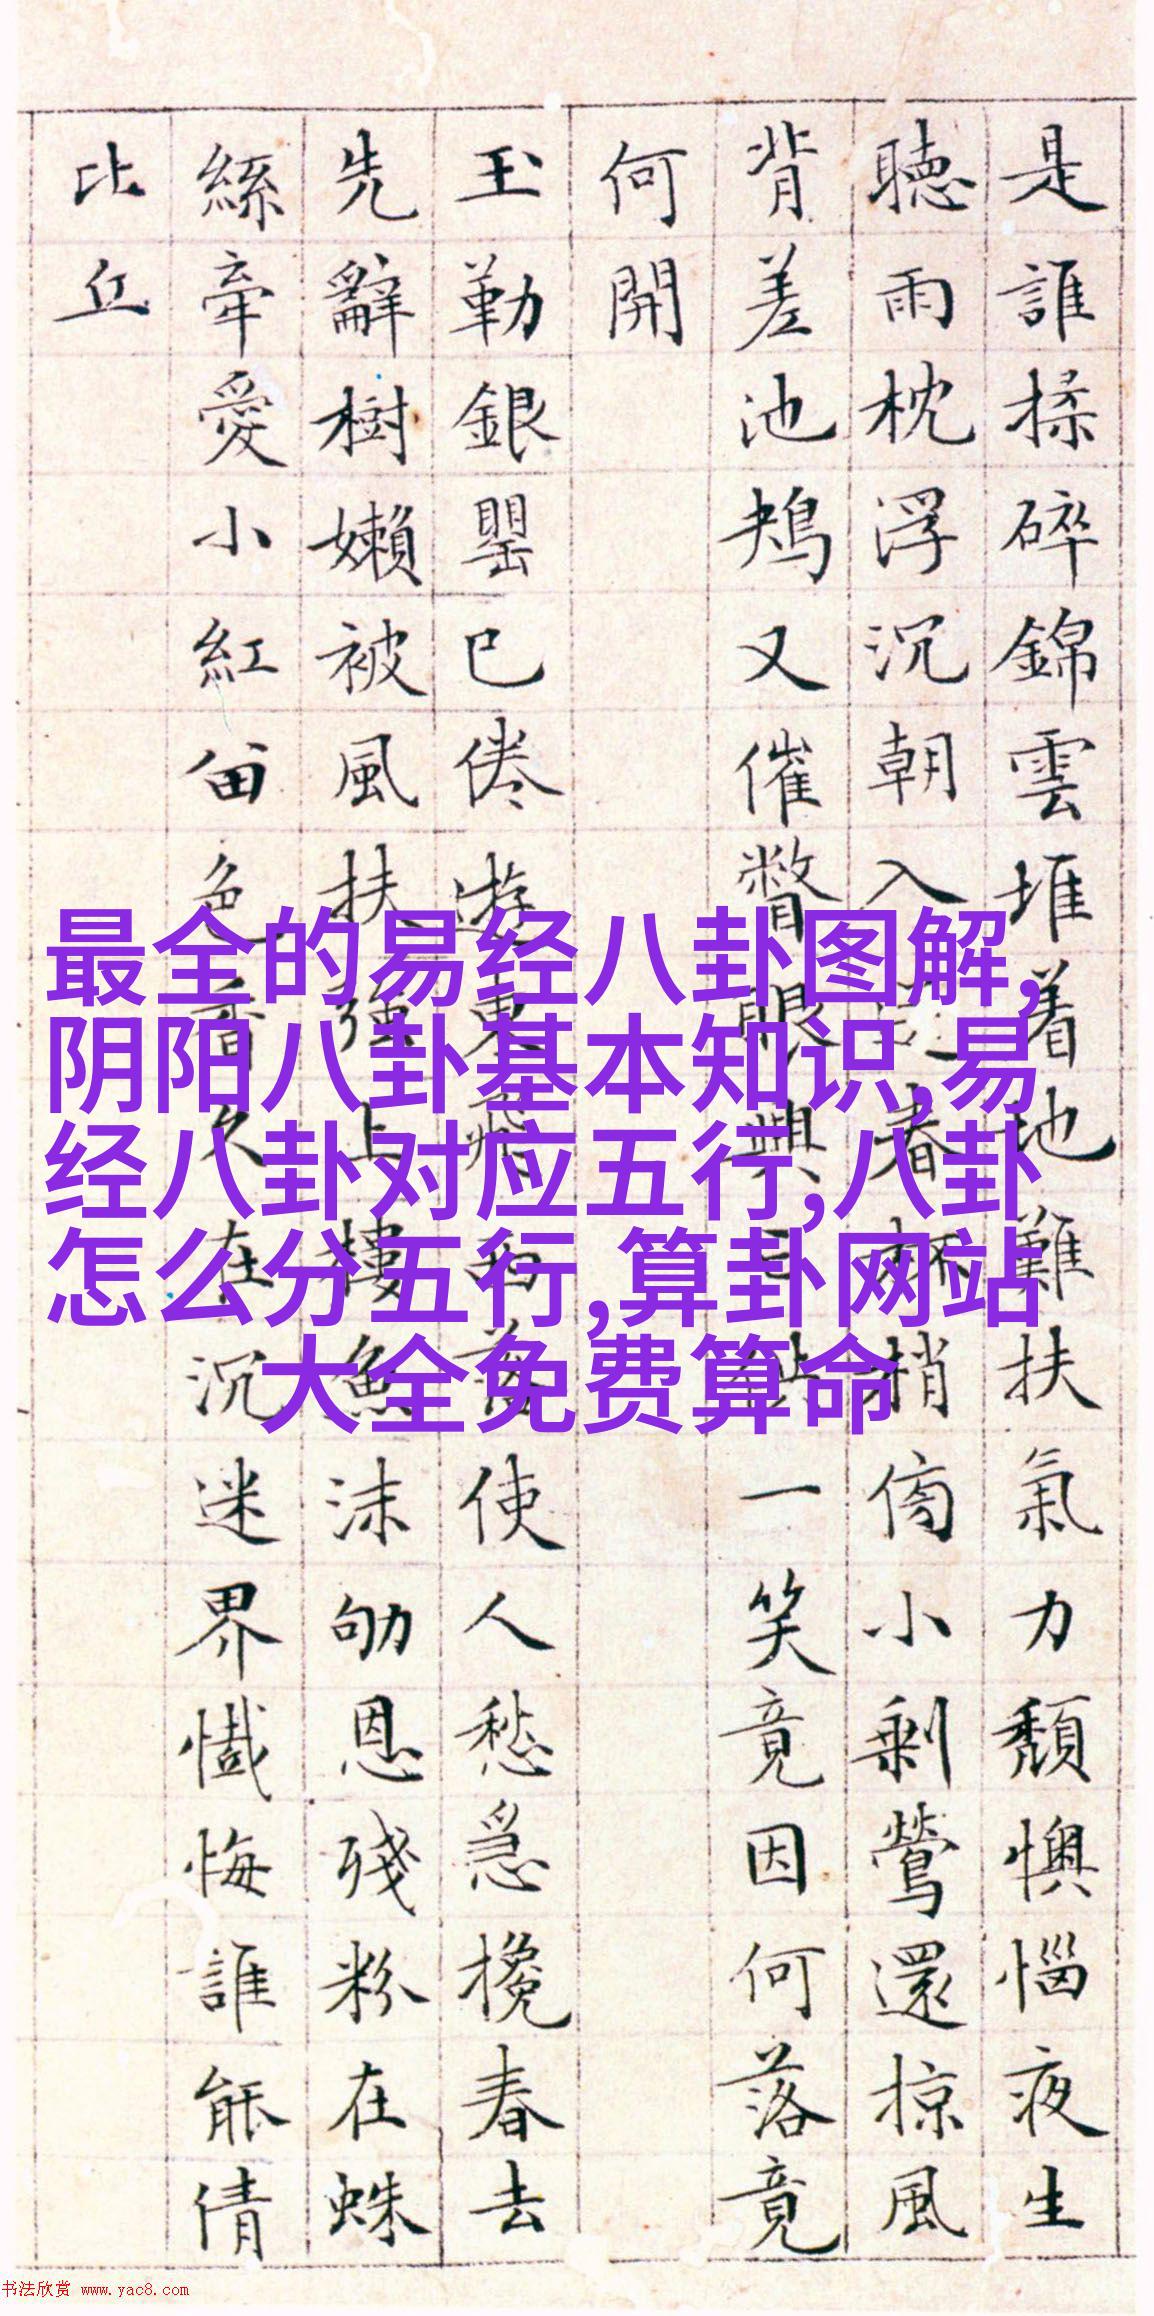 是誰揉碎錦雲堆着地難扶氣力頹懊惱夜生
聽雨枕浮沉朝入春梢傍小剩鶯還掠風
背差池鴂又催瞥眼興一笑竟因何落竟
何開
玉勒銀罌已倦遊東飛西落使人愁急攙春去
先辭樹嬾被風扶強上樓魚沫劬恩殘粉在蛛
絲牽愛小紅留色香久在沉迷界懺悔誰能倩
比丘
最全的易经八卦图解,
阴阳八卦基本知识,易
经八卦对应五行,八卦
怎么分五行,算卦网站
大全免费算命
书法欣赏 www.yac8.com